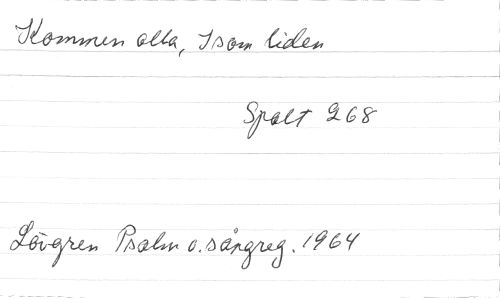 Kommen alla, I som liden
Spalt 268
Lövgren Psalm o. sångreg. 1964